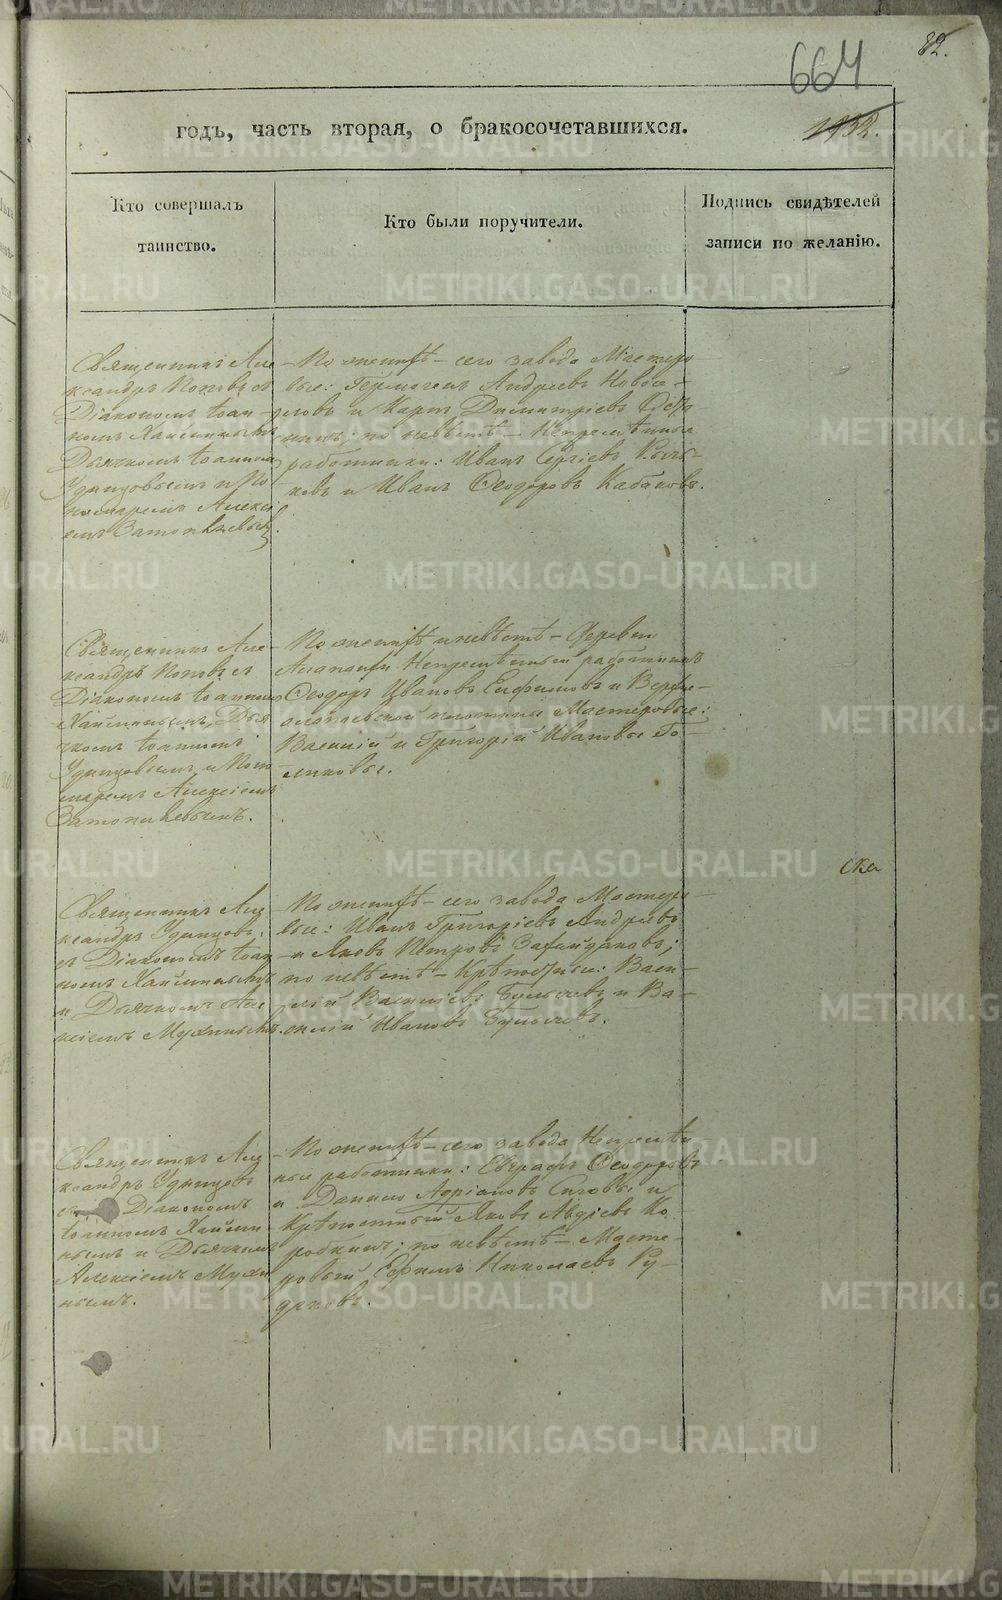 82.
664
1932.
годъ, часть вторая, о бракосочетавшихся.
Кто совершалъ
таинство.
Кто были поручители.
Подпись свидѣтелей
записи по желанію.
Священникъ Але
ксандръ Поповъ съ
Діакономъ Іоан-
номъ Хайминымъ
Дьячкомъ Іоанномъ
Удинцовымъ и По
номаремъ Алексі
емъ Затопляевымъ.
-По женихѣ- сего завода Мастеро
вые: Германъ Андреевъ Ново-
и Карпъ Димитріевъ
по невѣстѣ- Непремѣнные
работники: Иванъ Сергіевъ
ковъ и Иванъ Ѳеодоровъ Кабаковъ.
Священникъ Але-
ксандръ Поповъ съ
Діакономъ Іоанномъ
Хайминымъ, Дья
чкомъ Іоанномъ
Удинцовымъ и Поно
маремъ Алексіемъ
Затопляевымъ.
По женихѣ и невѣстѣ- Деревни
Алапаихи Непремѣнный работникъ
Ѳеодоръ Ивановъ Ефимовъ и Верхне-
Мастеровые:
Василій и Григорій Ивановы Го-
ликовы.
ска
Священникъ Але
ксандръ Удинцовъ,
съ Діакономъ Іоан
номъ Хайминымъ
и Дьячкомъ Але
ксіемъ Мухинымъ.
-По женихѣ- сего завода Мастеро-
вые: Иванъ Григоріевъ Андреевъ
-и Яковъ Петровъ
по невѣстѣ- Крѣпостные: Васи-
лій Василіевъ Булычевъ и Ва-
силій Ивановъ Булычевъ.
Священникъ Але
ксандръ Удинцовъ
съ Діакономъ
Іоанномъ Хайми-
нымъ и Дьячкомъ
Алексіемъ Мухи
нымъ.
-По женихѣ- сего завода Непремѣн
ные работники: Евграфъ Ѳеодоровъ
и Данило Адріановъ Сизовы и
Крѣпостный Яковъ Авдіевъ Ко
робкинъ; по невѣстѣ- Масте-
ровый Ефимъ Николаевъ Ру-
даковъ.
METRIKI.GASO-URAL.RU